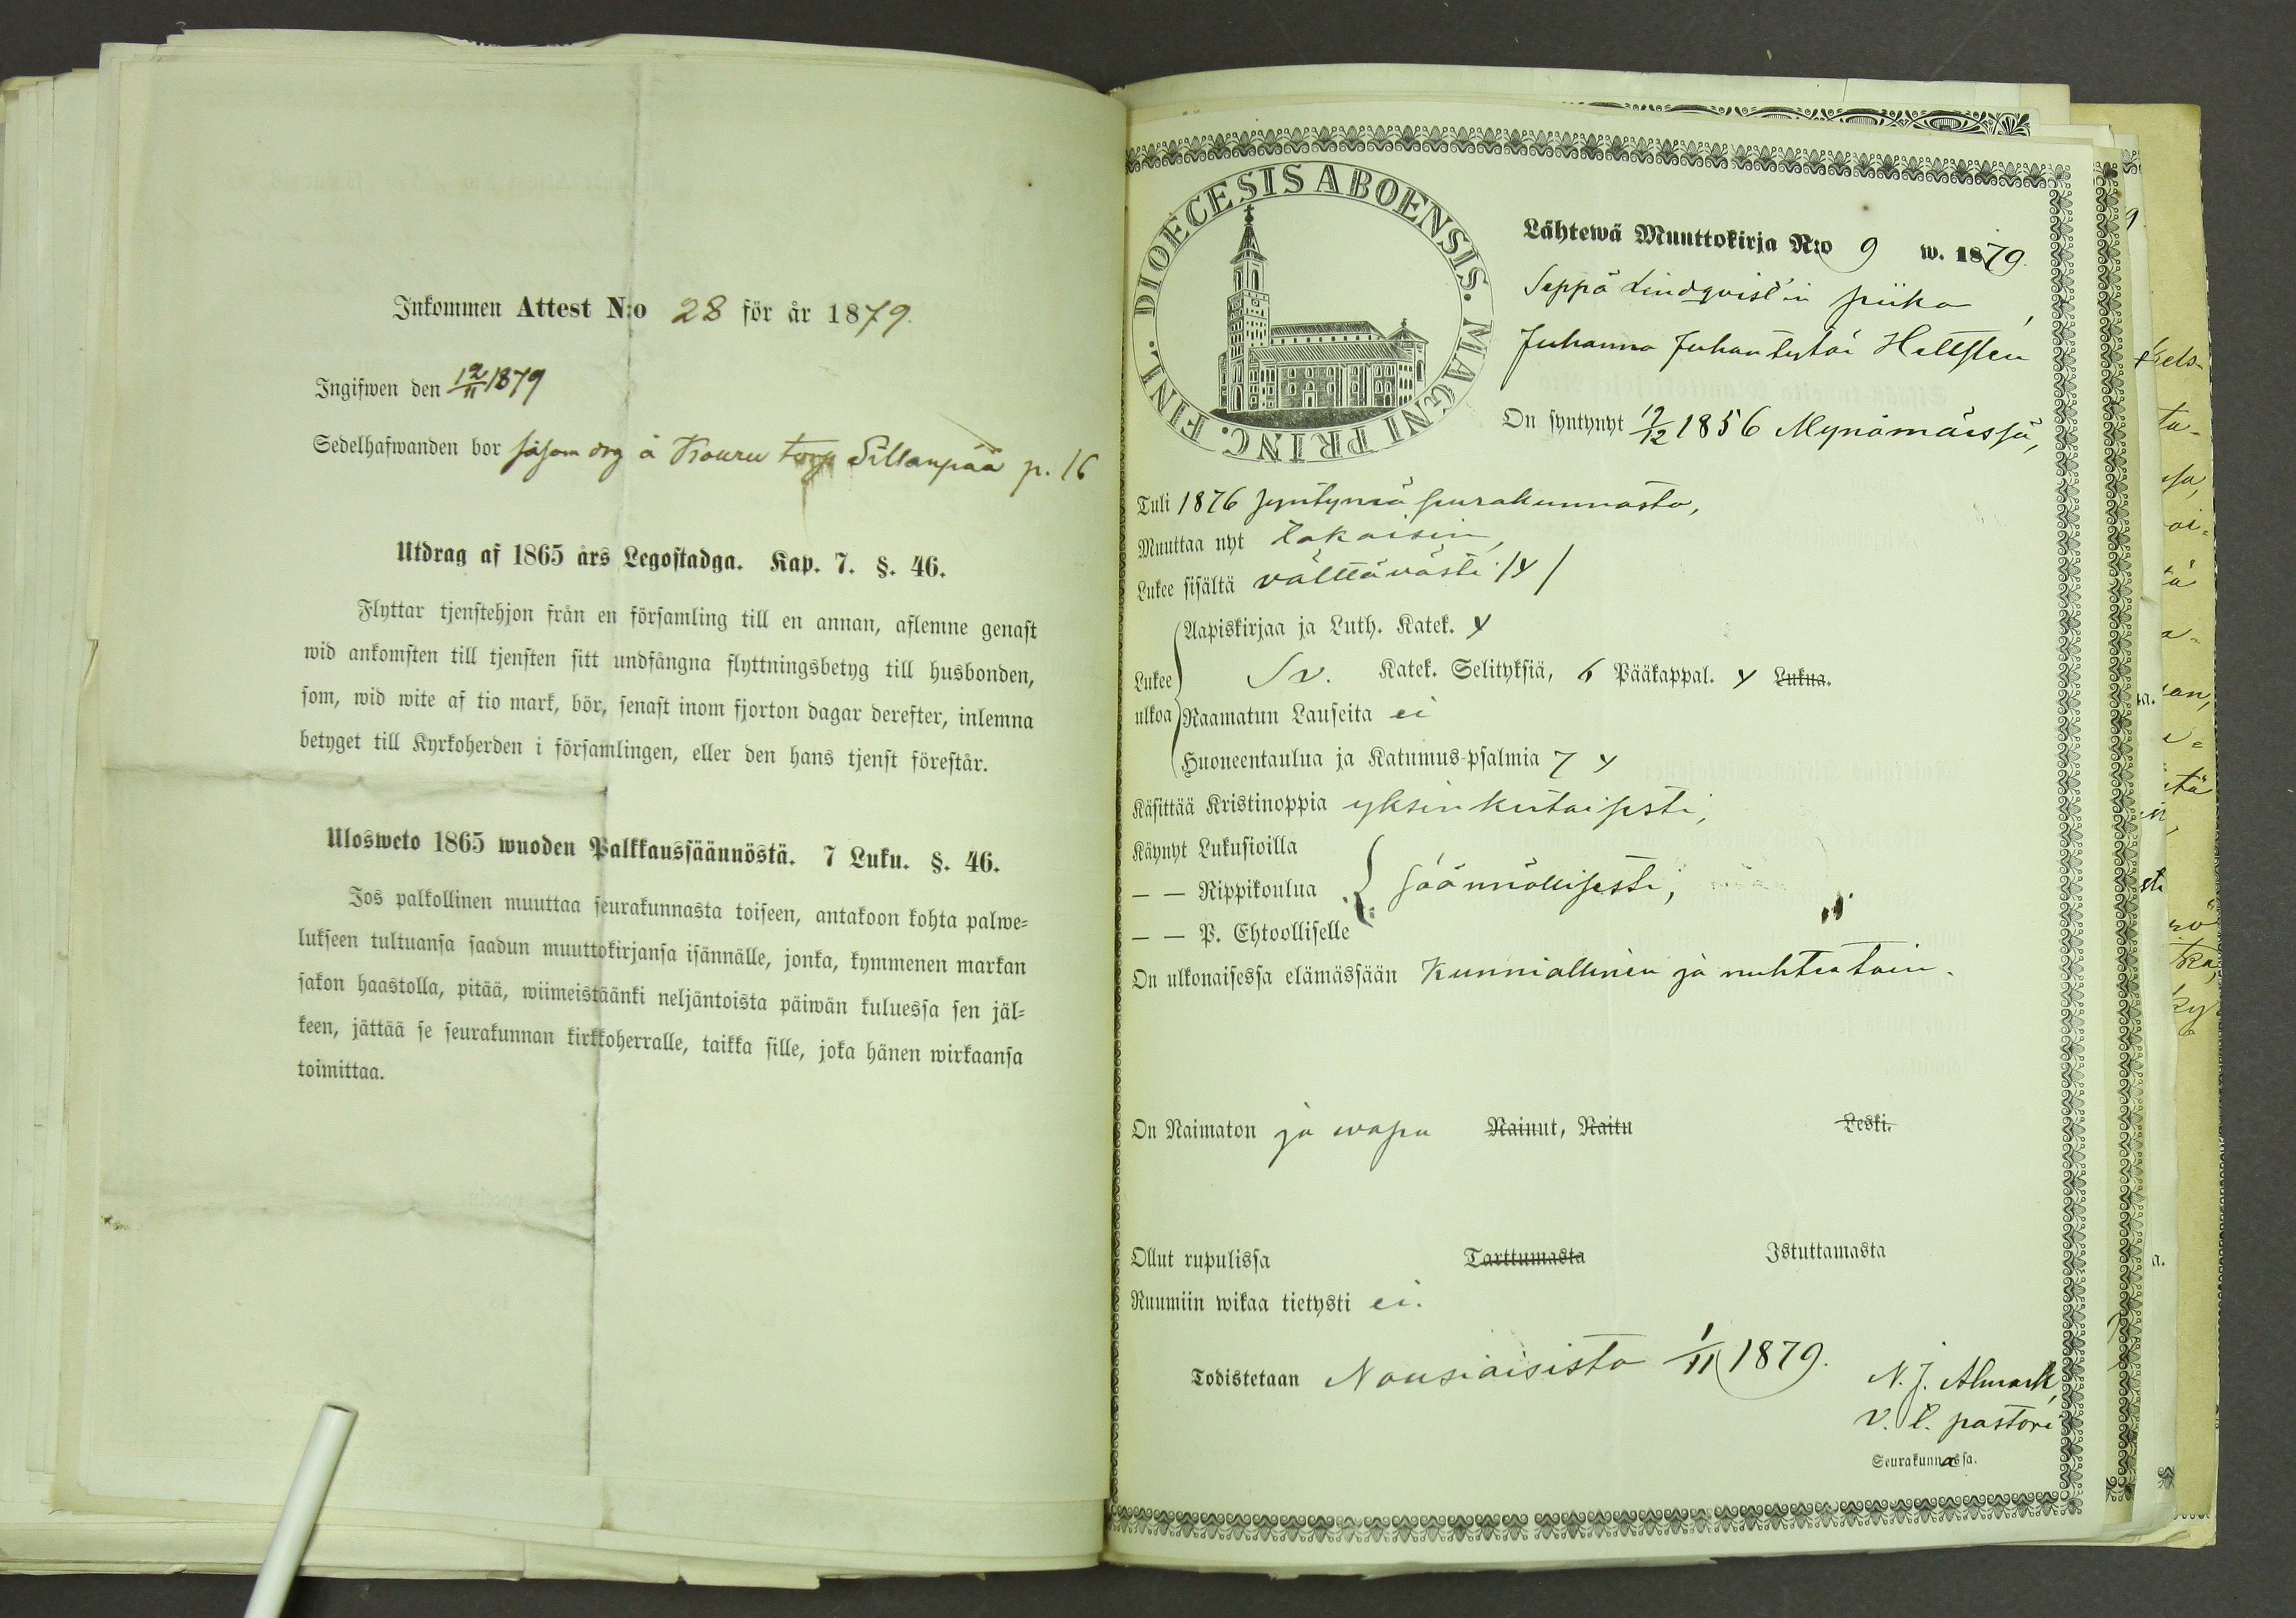 Inkommen Attest N:o 28 för år 1879.
Ingifwen den 12/11 1879
Sedelhafwanden bor såsom drg å Kouru torp Sillanpää p. 16
Utdrag af 1865 års Legostadga. Kap. 7. §. 46.
Flyttar tjenstehjon från en församling till en annan, aflemne genast
wid ankomsten till tjensten sitt undfångna flyttningsbetyg till husbonden,
som, wid wite af tio mark, bör, senast inom fjorton dagar derefter, inlemna
betyget till Kyrkoherden i församlingen, eller den hans tjenst förestår.
Ulosweto 1865 wuoden Palkkaussäännöstä. 7 Luku. §. 46.
Jos palkollinen muuttaa seurakunnasta toiseen, antakoon kohta palwe=
lukseen tultuansa saadun muuttokirjansa isännälle, jonka, kymmenen markan
sakon haastolla, pitää, wiimeistäänki neljäntoista päiwän kuluessa sen jäl=
keen, jättää se seurakunnan kirkkoherralle, taikka sille, joka hänen wirkaansa
toimittaa.
DIOECESIS ABOENSIS. MAGNI PRINC. FINL.
Lähtewä Muuttokirja N:o 9 w. 1879.
Seppä Lindqvist'in piika,
Juhanna Juhantytär Hellsten
On syntynyt 12/12 1856 Mynämäessä,
Tuli 1876 syntymä seurakunnasta,
Muuttaa nyt takaisin,
Lukee sisältä välttävästi /y/
Aapiskirjaa ja Luth. Katek. y
Lukee Sv. Katek. Selityksiä, 6 Pääkappal. y Lukua.
ulkoa Raamatun Lauseita ei
Huoneentaulua ja Katumus-psalmia 7 y
Käsittää Kristinoppia yksinkertaisesti,
Käynyt Lukusioilla
— — Rippikoulua säännöllisesti,
— — P. Ehtoolliselle
On ulkonaisessa elämässään Kunniallinen ja nuhteetoin.
On Naimaton ja wapa Nainut, Naitu Leski.
Ollut rupulissa Tarttumasta Istuttamasta
Ruumiin wikaa tietysti ei.
Todistetaan Nousiaisista 1/11 1879.
N. J. Almark,
v. t. pastori
Seurakunnassa.